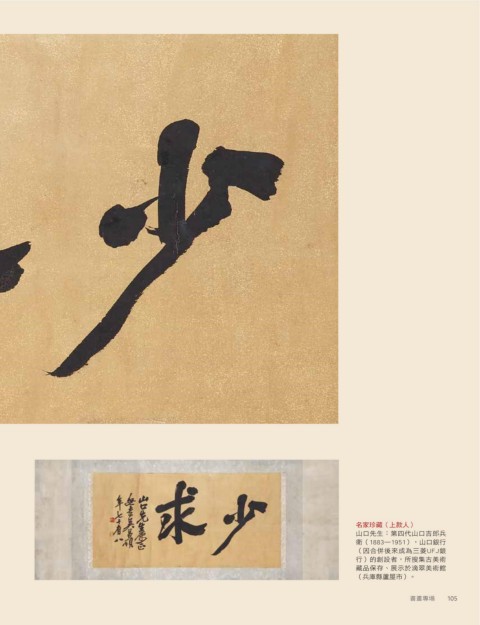 少
少求
山口先生屬
安吉吳昌碩
年七十有八
名家珍藏（上款人）
山口先生：第四代山口吉郎兵
衛（1883—1951），山口銀行
（因合併後來成為三菱UFJ銀
行）的創設者，所搜集古美術
藏品保存、展示於滴翠美術館
（兵庫縣蘆屋市）。
書畫專場 105